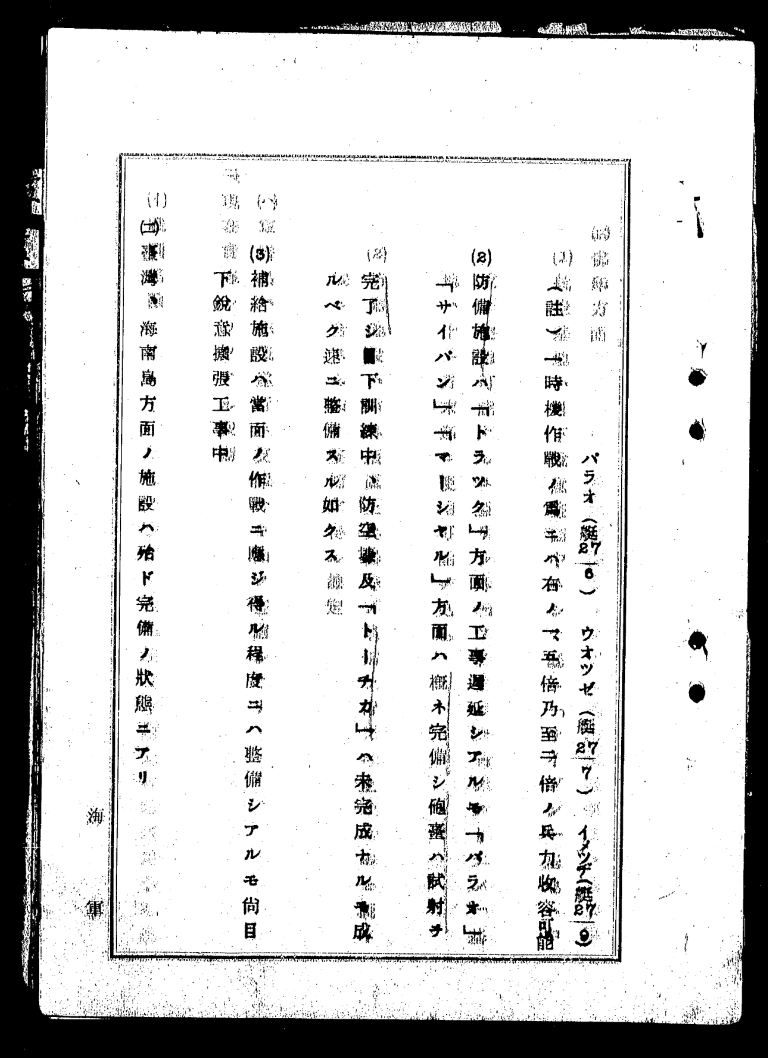 パラオ（艇27/6） ウオツゼ（艇27/7） イメヂ（艇27/9）
（註）一時機作戰ノ爲ニハ右ノ一、五倍乃至二倍ノ兵力收容可能
(2)防備施設ハ「トラツク」方面ノ工事遲延シアルモ「パラオ」
「サイパン」「マーシヤル」方面ハ概ネ完備シ砲臺ハ試射ヲ
完了シ目下訓練中、防空壕及「トーチカ」ハ未完成ナルモ成
ルベク速ニ整備スル如クス
(3)補給施設ハ當面ノ作戰ニ應ジ得ル程度ニハ整備シアルモ尚目
下鋭意擴張工事中
㈡臺灣、海南島方面ノ施設ハ殆ド完備ノ狀態ニアリ
海軍